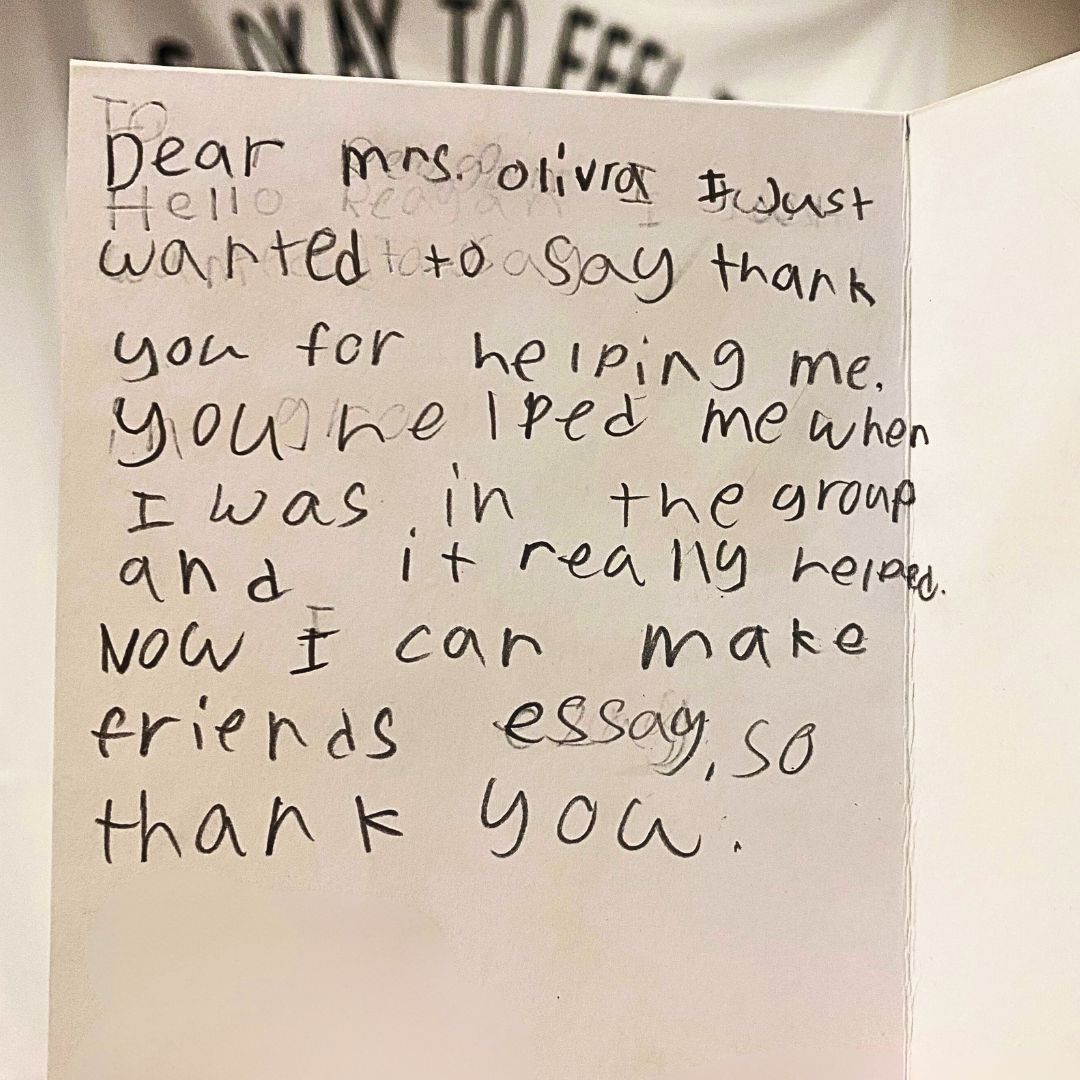 OKAY TO FEEL
TO
Dear mrs. olivra I Just
Hello Reagan I
wanted to say thank
you for helping me.
you helped me when
I was in the group
and it really helped.
Now I can make
friends essay, so
thank you.